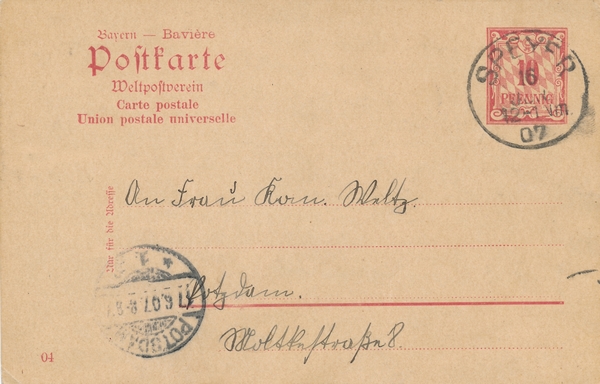 Bayern — Bavière
Postkarte
Weltpostverein
Carte postale
Union postale universelle
10
PFENNIG
SPEYER
16
12-1 Nm.
07
Nur für die Adresse
An Frau Kom. Weltz.
Potzdam.
Moltkestraße 8
POTSDAM
17.6.07. 8-9
04